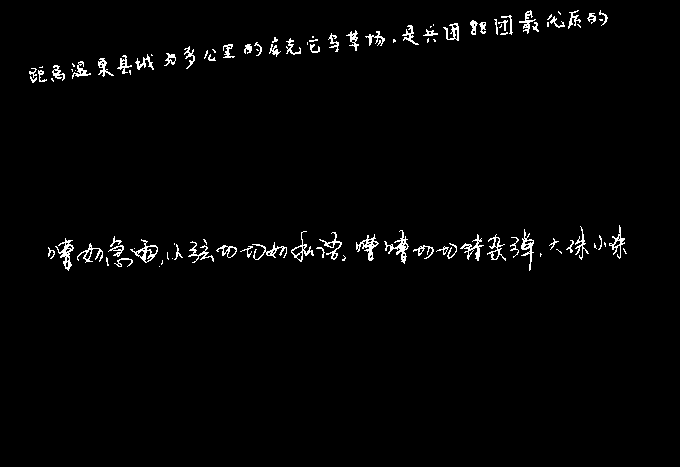 距离温泉县城30多公里的库克它乌草场，是兵团88团最优质的
嘈如急雨，小弦切切如私语，嘈嘈切切错杂弹，大珠小珠